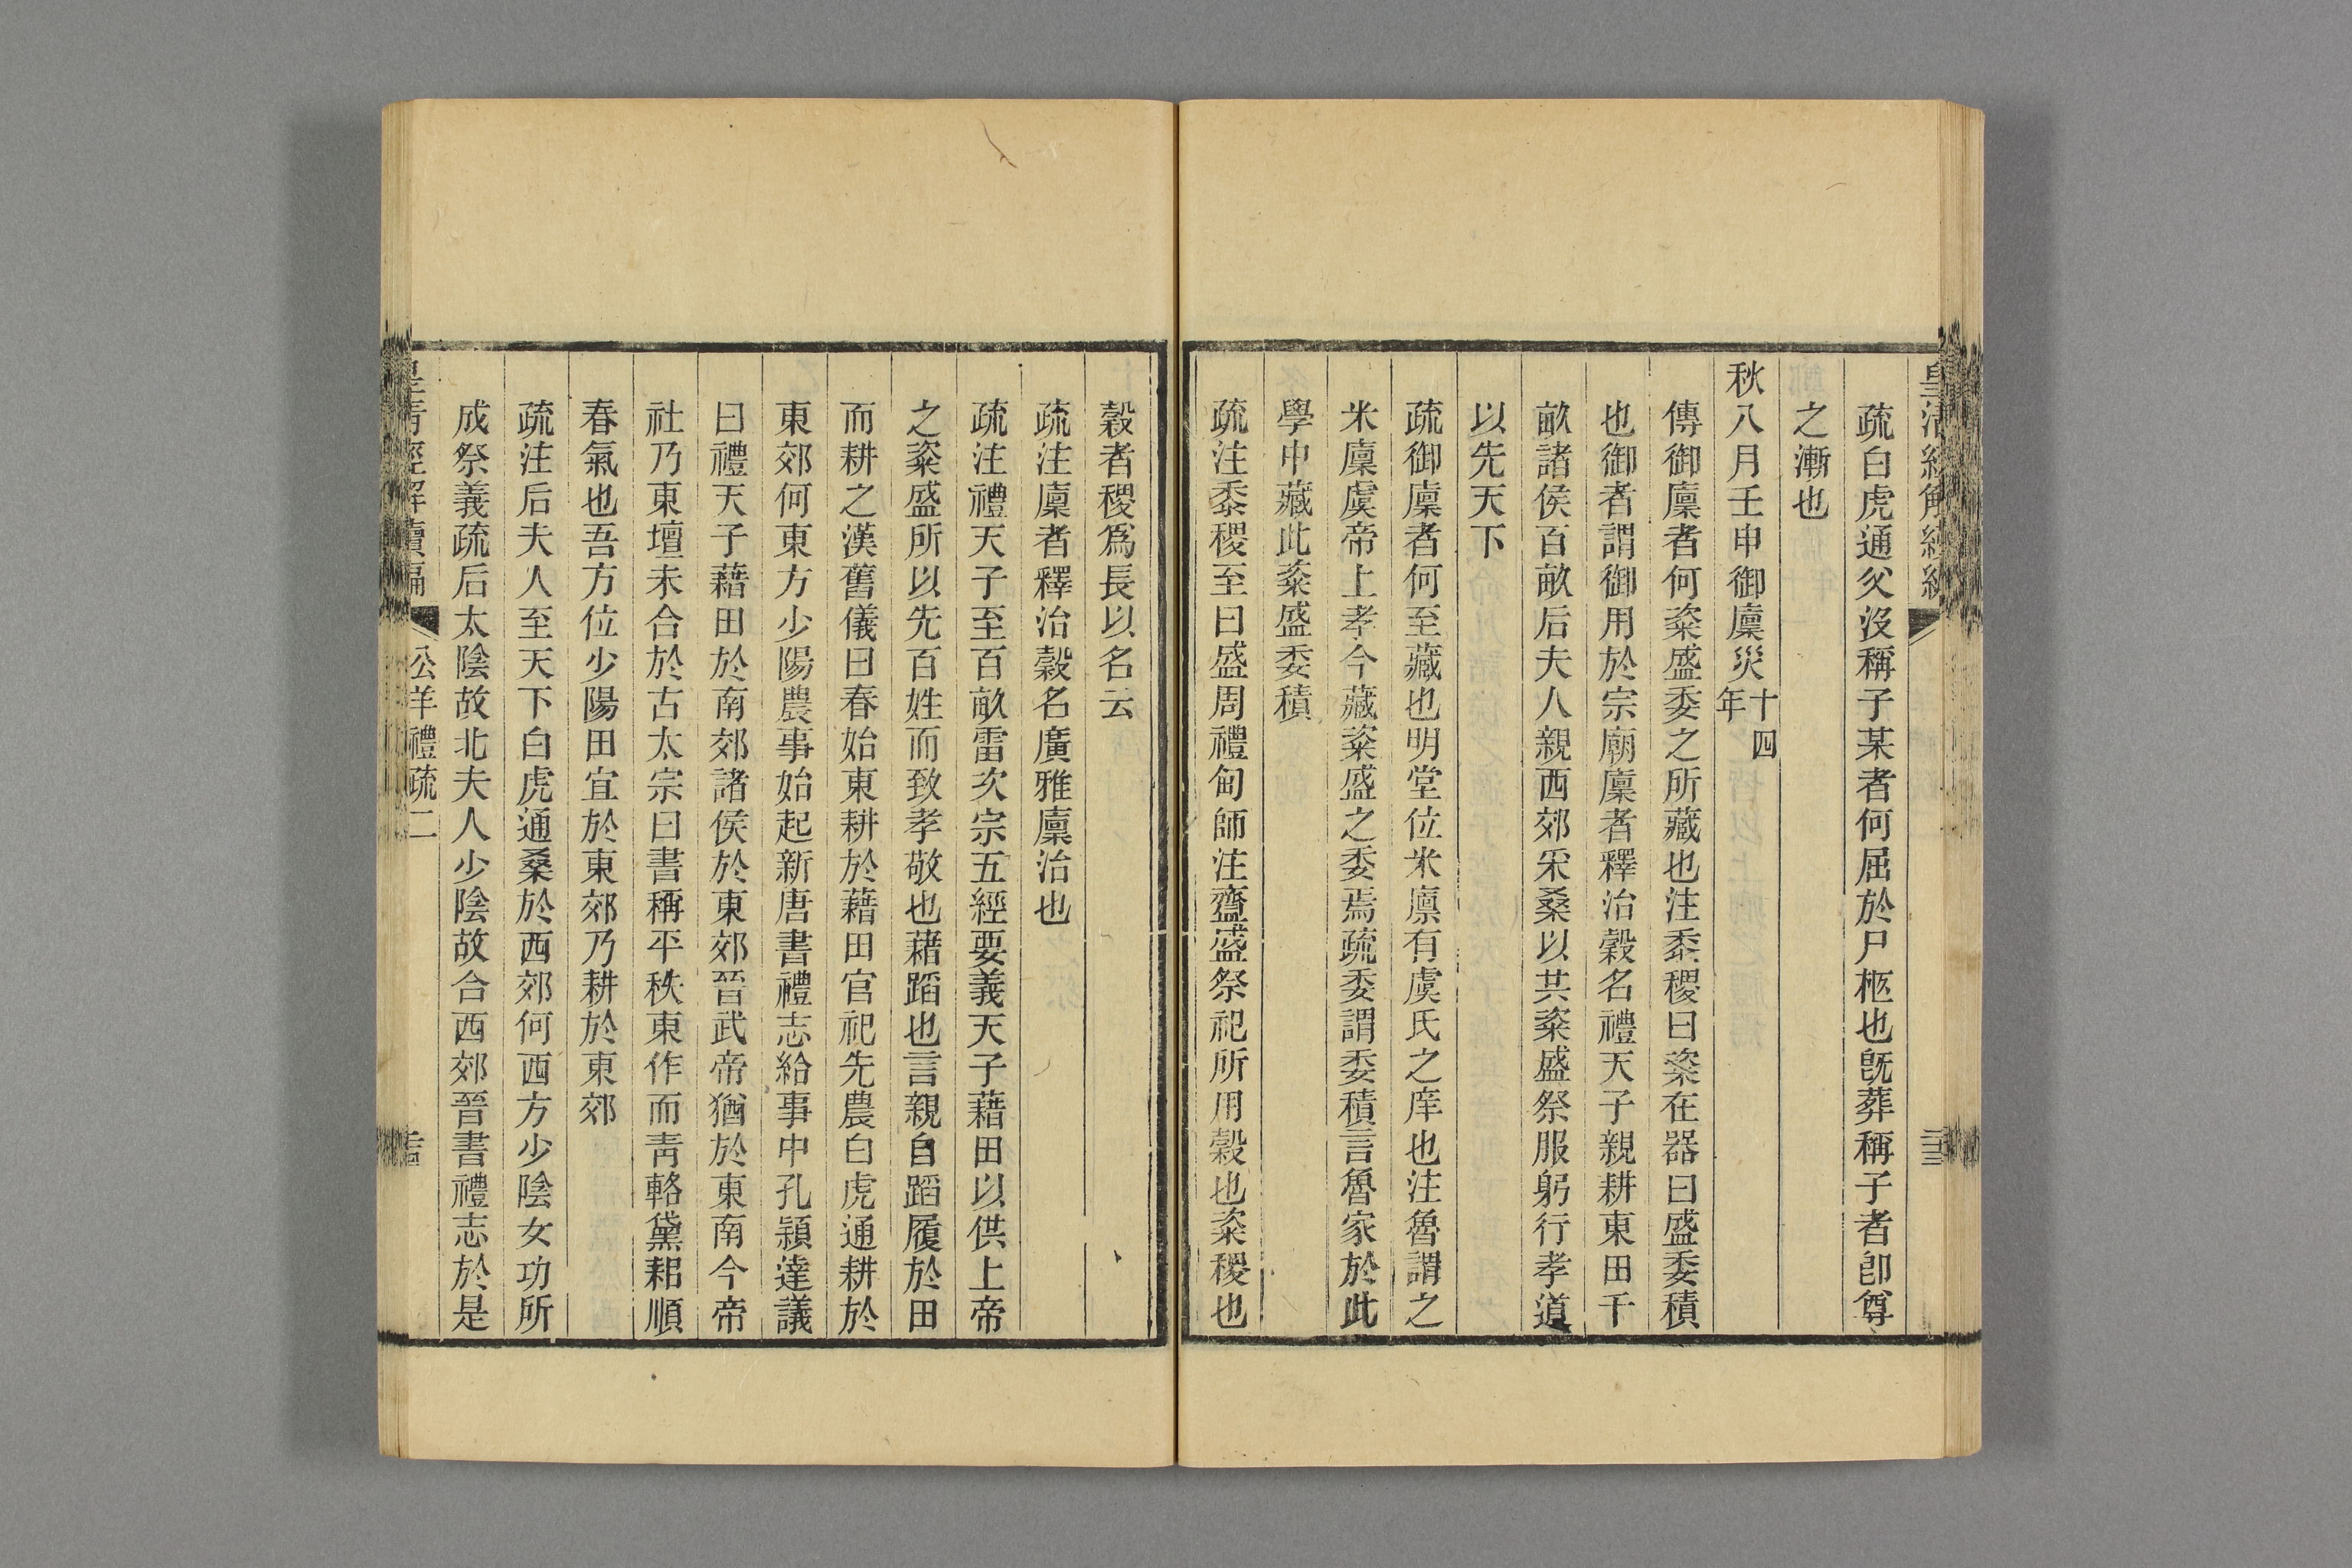 疏白虎通父沒稱子某者何屈於尸柩也旣葬稱子者卽尊
之漸也
秋八月壬申御廩災十四年
傳御廩者何粢盛委之所藏也注黍稷曰粢在器曰盛委積
也御者謂御用於宗廟廩者釋治穀名禮天子親耕東田千
畝諸侯百畝后夫人親西郊采桑以共粢盛祭服躬行孝道
以先天下
疏御廩者何至藏也明堂位米廩有虞氏之庠也注魯謂之
米廩虞帝上孝今藏粢盛之委焉疏委謂委積言魯家於此
學中藏此粢盛委積
疏注黍稷至曰盛周禮甸師注齍盛祭祀所用穀也粢稷也
穀者稷爲長以名云
疏注廩者釋治穀名廣雅廩治也
疏注禮天子至百畝雷次宗五經要義天子藉田以供上帝
之粢盛所以先百姓而致孝敬也藉蹈也言親自蹈履於田
而耕之漢舊儀曰春始東耕於藉田官祀先農白虎通耕於
東郊何東方少陽農事始起新唐書禮志給事中孔穎達議
曰禮天子藉田於南郊諸侯於東郊晉武帝猶於東南今帝
社乃東壇未合於古太宗曰書稱平秩東作而靑輅黛耜順
春氣也吾方位少陽田宜於東郊乃耕於東郊
疏注后夫人至天下白虎通桑於西郊何西方少陰女功所
成祭義疏后太陰故北夫人少陰故合西郊晉書禮志於是
皇清經解續編 公羊禮疏二